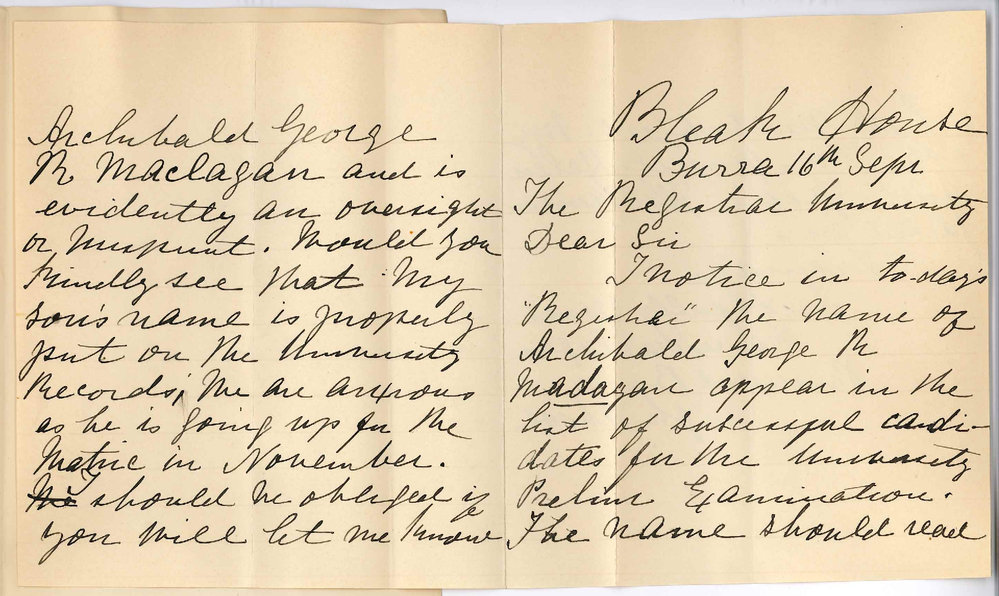 Bleak House
Burra 16th Sepr
The Registrar University
Dear Sir
I notice in to-day's
"Registrar" the name of
Archibald George R
Madagan appear in the
list of successful candi-
dates for the University
Prelim Examination.
The name should read
Archibald George
R Maclagan and is
evidently an oversight
or misprint. Would you
kindly see that my
son's name is properly
put on the University
Records; We are anxious
as he is going up for the
Matric in November.
We I should be obliged if
you will let me know